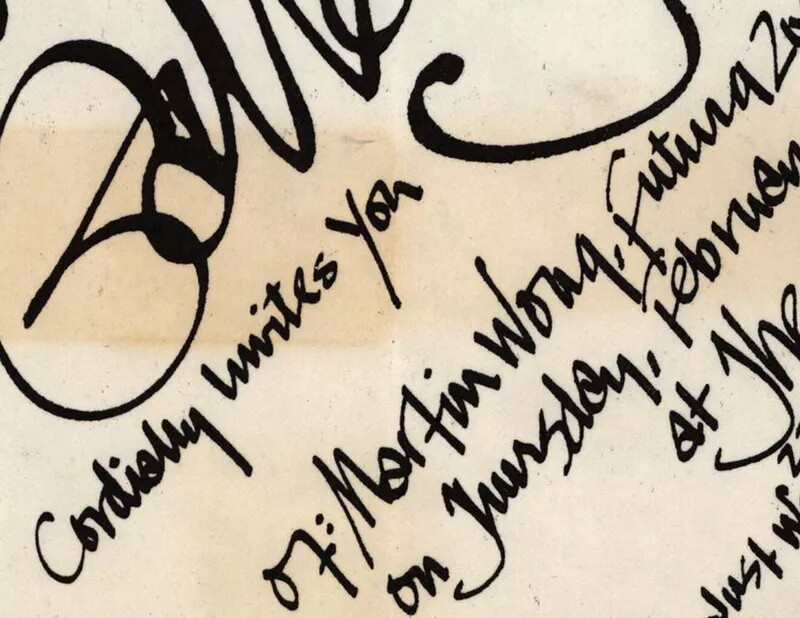 Cordially Invites You
Of: Martin Wong, Futura 20
on Thursday, Februar
at The
Just w